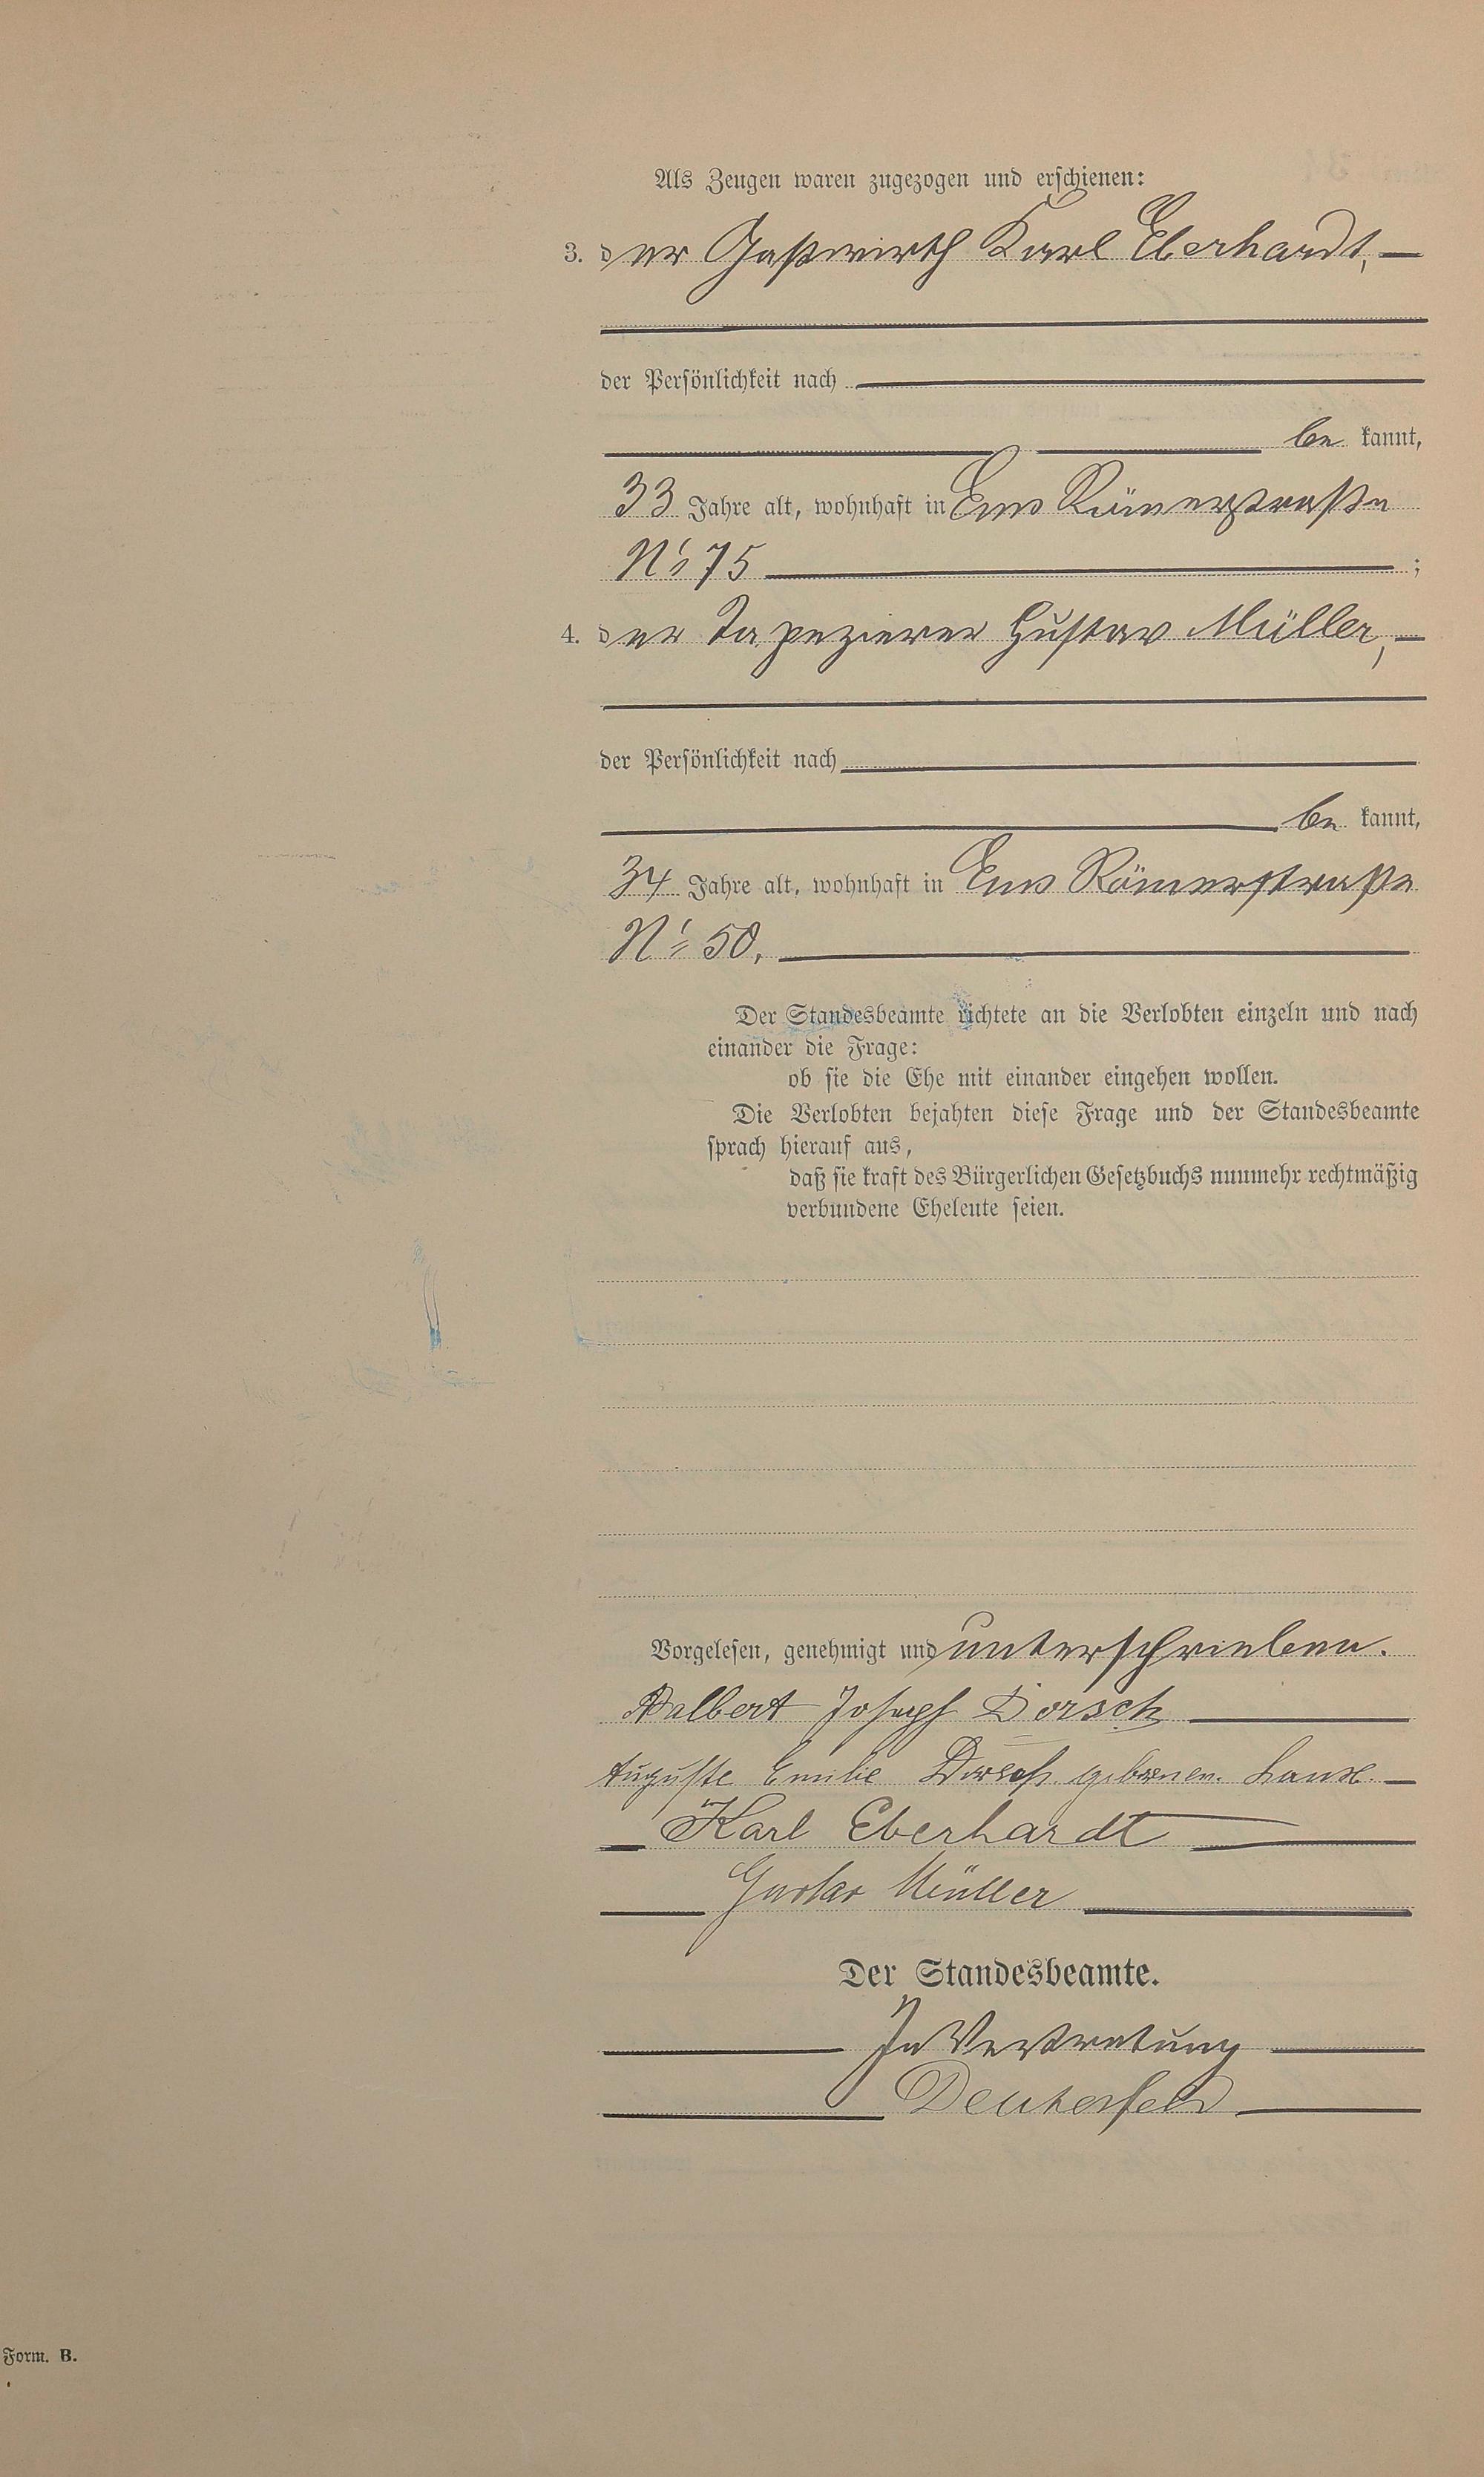 Als Zeugen waren zugezogen und erschienen:
3. der Gastwirth Karl Eberhardt,
der Persönlichkeit nach
be kannt,
33 Jahre alt, wohnhaft in Ems Römerstraße
No 75 ;
4. der Tapezierer Gustav Müller,
der Persönlichkeit nach
be kannt,
34 Jahre alt, wohnhaft in Ems Römerstraße
No 50,
Der Standesbeamte richtete an die Verlobten einzeln und nach
einander die Frage:
ob sie die Ehe mit einander eingehen wollen.
Die Verlobten bejahten diese Frage und der Standesbeamte
sprach hierauf aus,
daß sie kraft des Bürgerlichen Gesetzbuchs nunmehr rechtmäßig
verbundene Eheleute seien.
Vorgelesen, genehmigt und unterschrieben.
Adalbert Joseph Dorsch
Auguste Emilie Dorsch geborenen
Karl Eberhardt
Gustav Müller
Der Standesbeamte.
In Vertretung
Form. B.